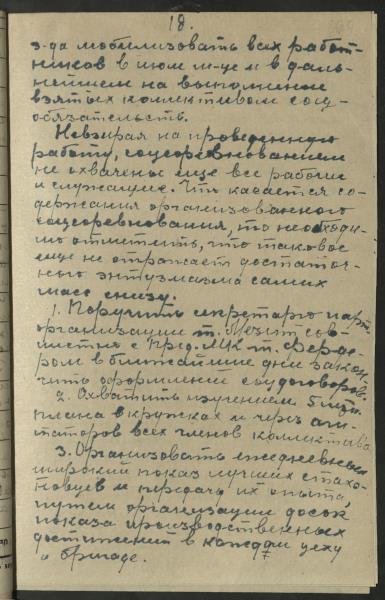 18.
з-да мобилизовать всех работ-
ников в июн м-це и в даль-
нейшем на выполнение
взятых коллективом соц-
обязательств.
Невзирая на проведенную
работу, соцсоревнованием
не охвачены еще все рабочие
и служащие. Что касается со-
держания организованного
соцсоревнования, то необходи-
мо отметить, что таковое
еще не отражает достаточ-
ного энтузиазма самих
масс снизу.
1. Поручить секретарю парт
организации т. Мезит сов-
местно с Пред. МК т.
ром в ближайшие дни закон
чить оформление соцдоговоров.
2. Охватить изучением 5 лет.
плана в кружках и через аги-
таторов всех членов коллектива
3. Организовать ежедневный
широкий показ лучших стаха-
новцев и передачу их опыта,
путем организации досок
показа производственных
достижений в каждом цеху
и бригаде.